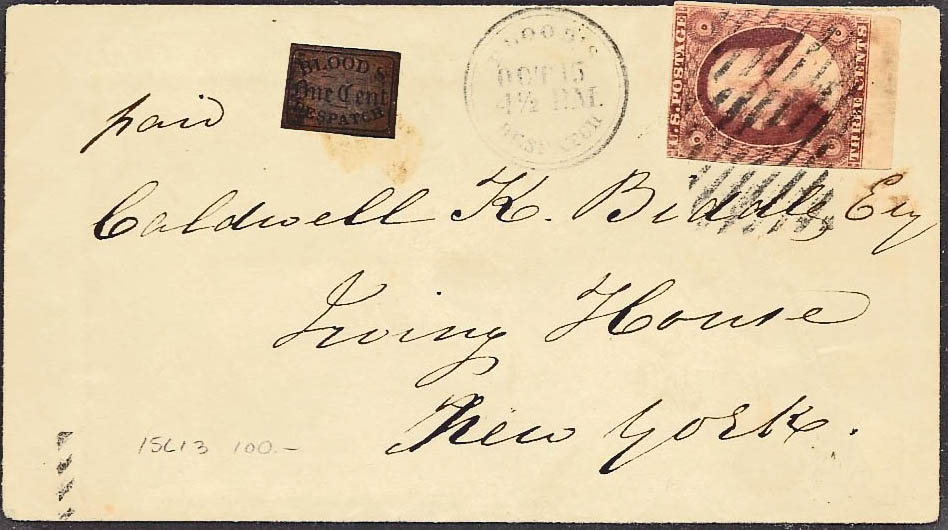 BLOOD'S
One Cent
DESPATCH
BLOOD'S
OCT 15
4½ P.M.
DESPATCH
U.S. POSTAGE
THREE CENTS
paid
Caldwell K. Biddle, Esq
Irving House
New York.
15L13 100.-